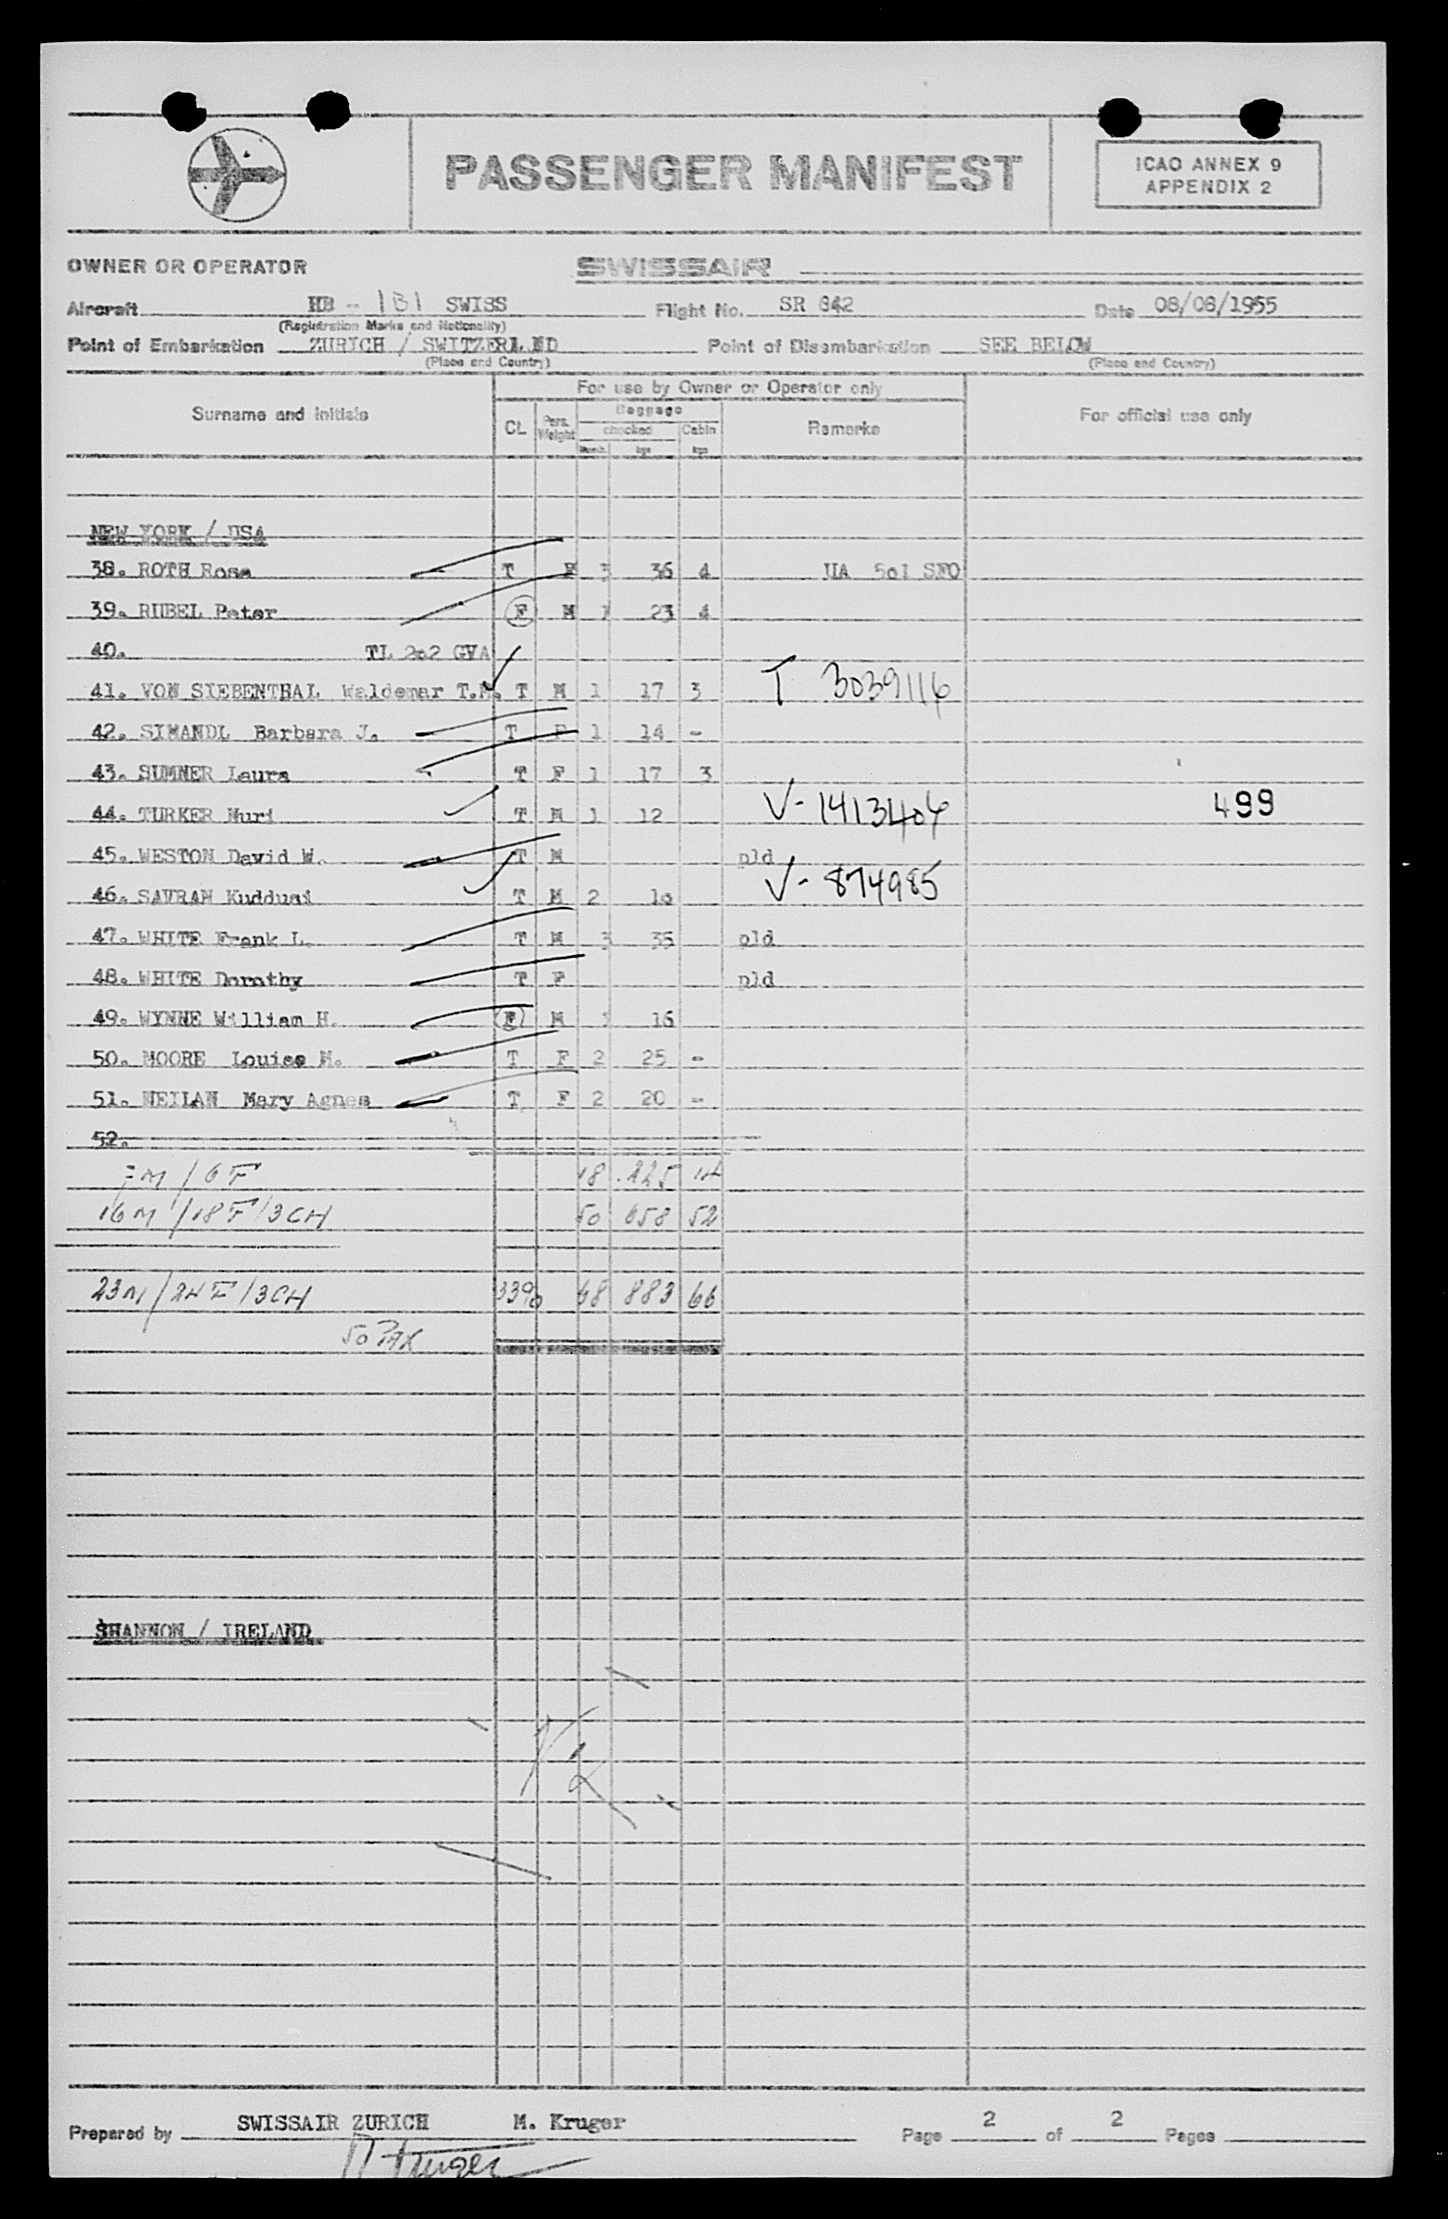 PASSENGER MANIFEST
ICAO ANNEX 9
APPENDIX 2
OWNER OR OPERATOR SWISSAIR
Aircraft HB - IBI SWISS Flight No. SR 842 Date 08/08/1955
(Registration Marks and Nationality)
Point of Embarkation ZURICH / SWITZERLAND Point of Disembarkation SEE BELOW
(Place and Country) (Place and Country)
For use by Owner or Operator only
Surname and Initials CL. Pers. Weight Baggage checked Cabin Remarks For official use only
Numb. kgs kgs
NEW YORK / USA
38. ROTH Rosa T F 3 36 4 UA 501 SFO
39. RUBEL Peter F M 1 23 4
40. TL 202 GVA
41. VON SIEBENTHAL Waldemar T.M. T M 1 17 3 T 3039116
42. SIMANDL Barbara J. T F 1 14 -
43. SUMNER Laura T F 1 17 3
44. TURKER Nuri T M 1 12 V- 1413406 499
45. WESTON David W. T M pld
46. SAVRAN Kuddusi T M 2 10 V- 874985
47. WHITE Frank L. T M 3 35 pld
48. WHITE Dorothy T F pld
49. WYNNE William H. F M 1 16
50. MOORE Louise M. T F 2 25 -
51. NEILAN Mary Agnes T F 2 20 -
52.
7M / 6F 18 225 14
16M / 18F / 3CH 50 658 52
23M / 24F / 3CH 3390 68 883 66
50 PAX
SHANNON / IRELAND
Prepared by SWISSAIR ZURICH M. Kruger Page 2 of 2 Pages
M Kruger